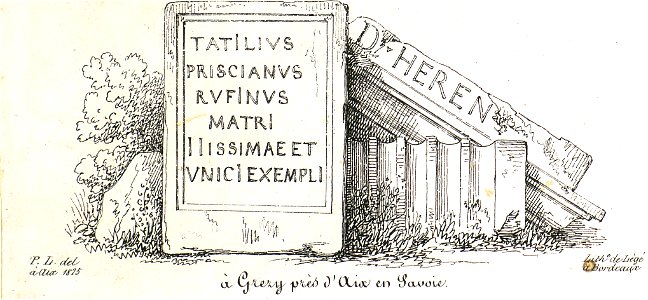 TATILIVS
PRISCIANVS
RVFINVS
MATRI
IIISSIMAE ET
VNICI EXEMPLI
D HEREN
P. L. del
à Aix 1875
Lith. de Légé
à Bordeaux
à Grezy près d'Aix en Savoie.